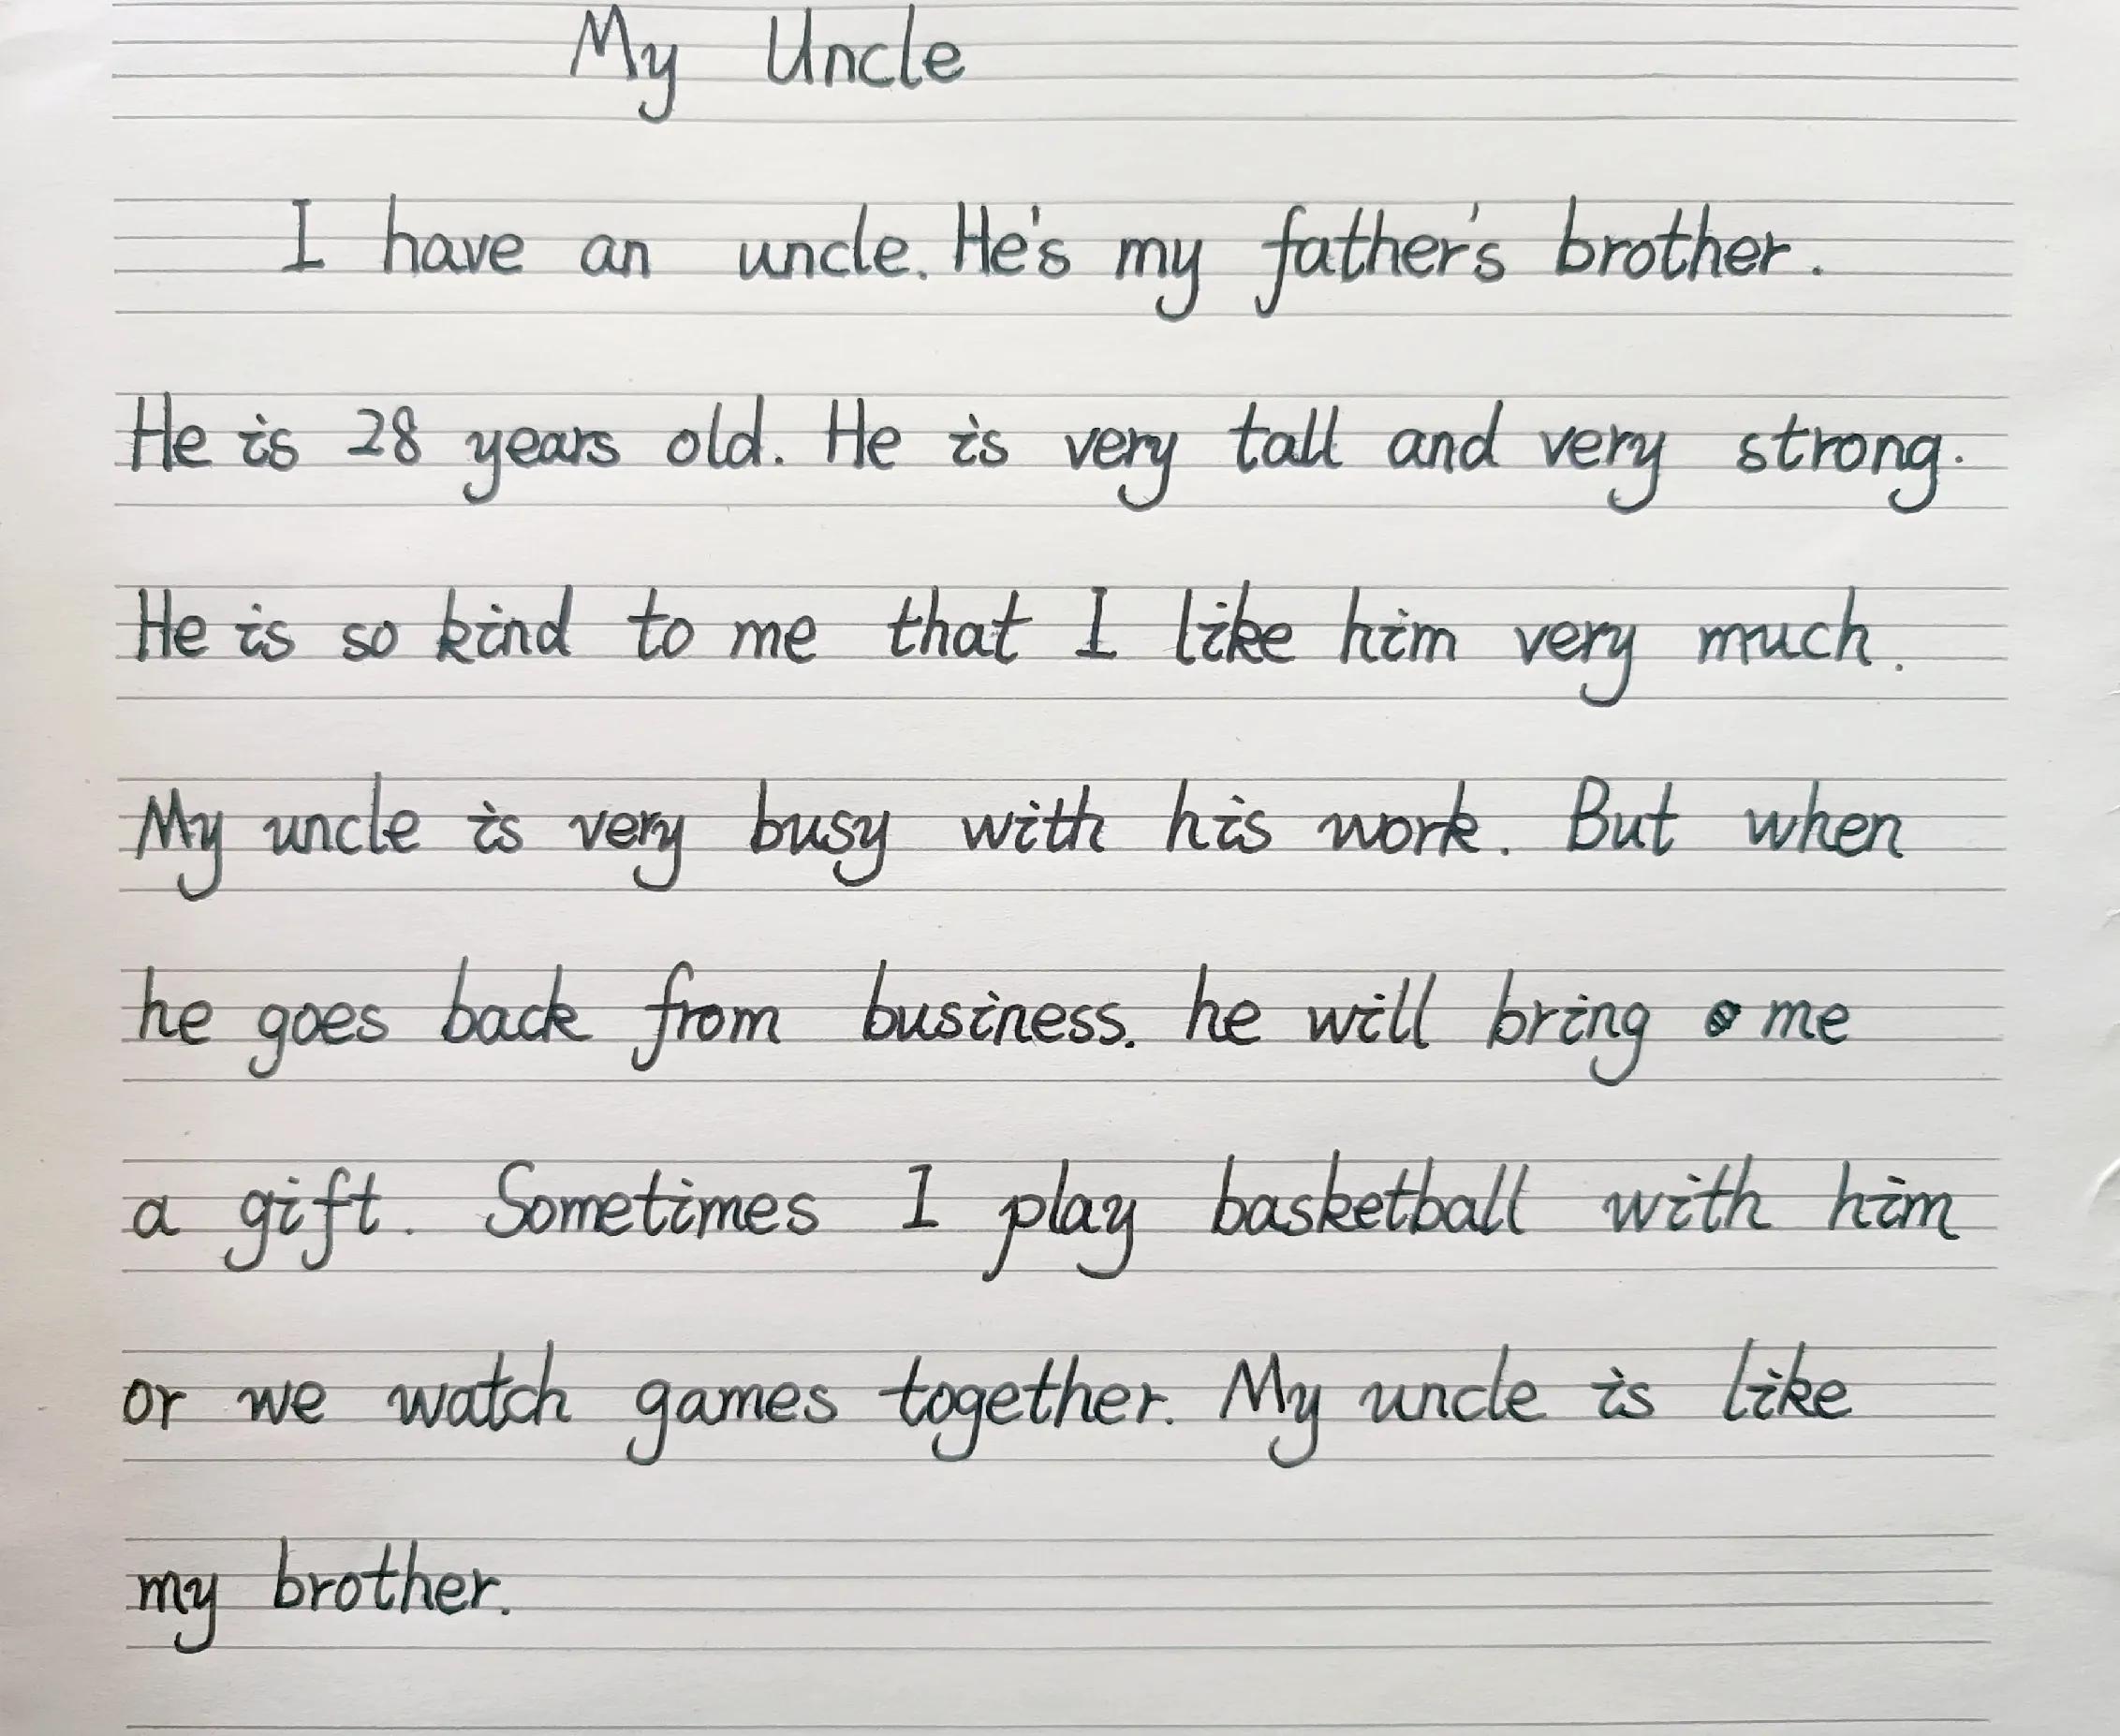 My Uncle
I have an uncle. He's my father's brother.
He is 28 years old. He is very tall and very strong.
He is so kind to me that I like him very much.
My uncle is very busy with his work. But when
he goes back from business. he will bring me
a gift. Sometimes I play basketball with him
or we watch games together. My uncle is like
my brother.